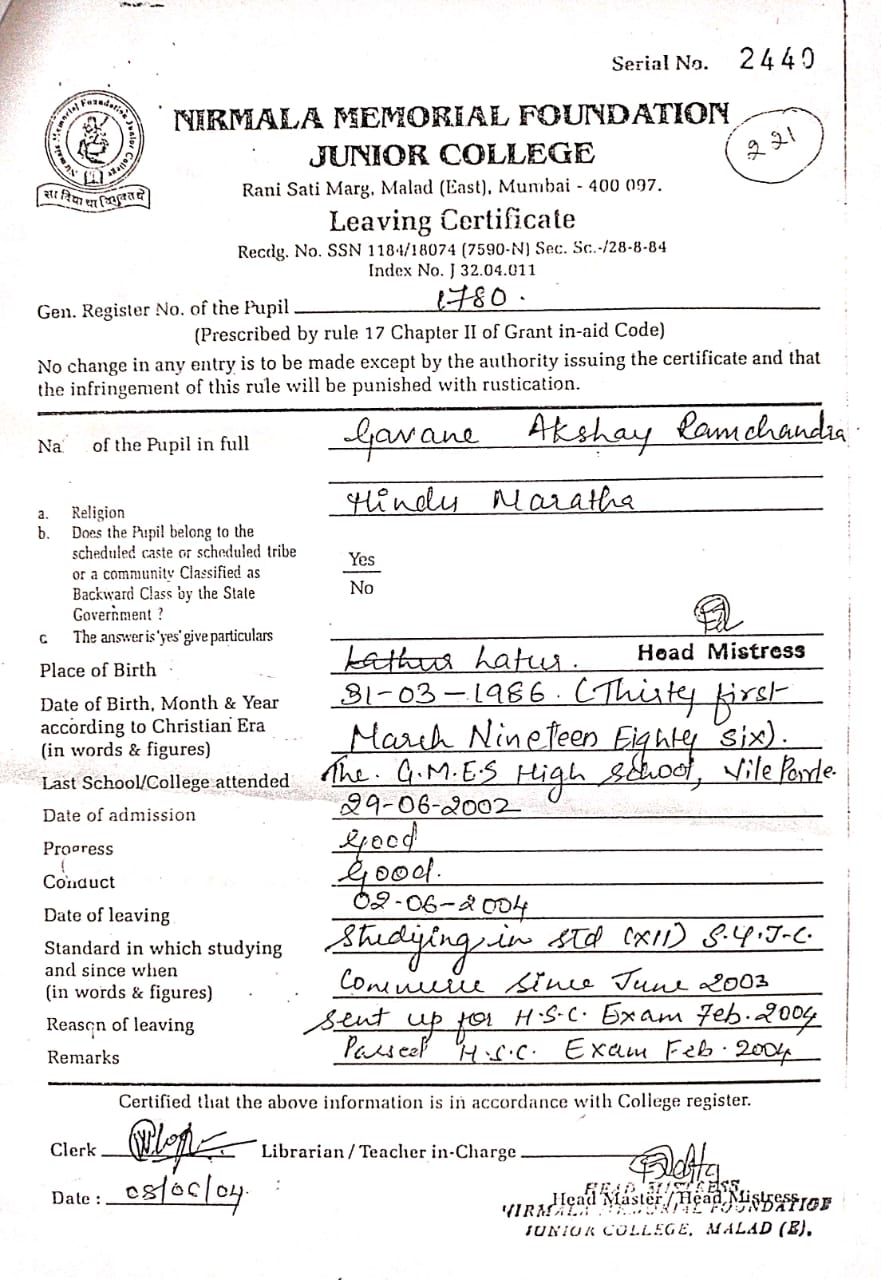 Serial No. 2440
NIRMALA MEMORIAL FOUNDATION
JUNIOR COLLEGE
221
Rani Sati Marg, Malad (East), Mumbai - 400 097.
Leaving Certificate
Recdg. No. SSN 1184/18074 (7590-N) Sec. Sc.-/28-8-84
Index No. J 32.04.011
Gen. Register No. of the Pupil 1780.
(Prescribed by rule 17 Chapter II of Grant in-aid Code)
No change in any entry is to be made except by the authority issuing the certificate and that
the infringement of this rule will be punished with rustication.
Na of the Pupil in full Gavane Akshay Ramchandra
a. Religion Hindu Maratha
b. Does the Pupil belong to the
scheduled caste or scheduled tribe Yes
or a community Classified as
Backward Class by the State No
Government ?
c The answer is 'yes' give particulars
Head Mistress
Place of Birth Lathur Latur.
Date of Birth, Month & Year 31-03-1986. (Thirty first
according to Christian Era March Nineteen Eighty six).
(in words & figures)
Last School/College attended The. G.M.E.S High School, Vile Parle.
Date of admission 29-06-2002
Progress Good
Conduct Good.
Date of leaving 02-06-2004
Standard in which studying Studying in STD (XII) S.Y.J.C.
and since when
(in words & figures) Commerce since June 2003
Reason of leaving Sent up for H.S.C. Exam Feb. 2004
Remarks Passed H.S.C. Exam Feb. 2004
Certified that the above information is in accordance with College register.
Clerk Librarian / Teacher in-Charge
Date : 08/06/04
HEAD MISTRESS
Head Master / Head Mistress
NIRMALA MEMORIAL FOUNDATION
JUNIOR COLLEGE, MALAD (E).